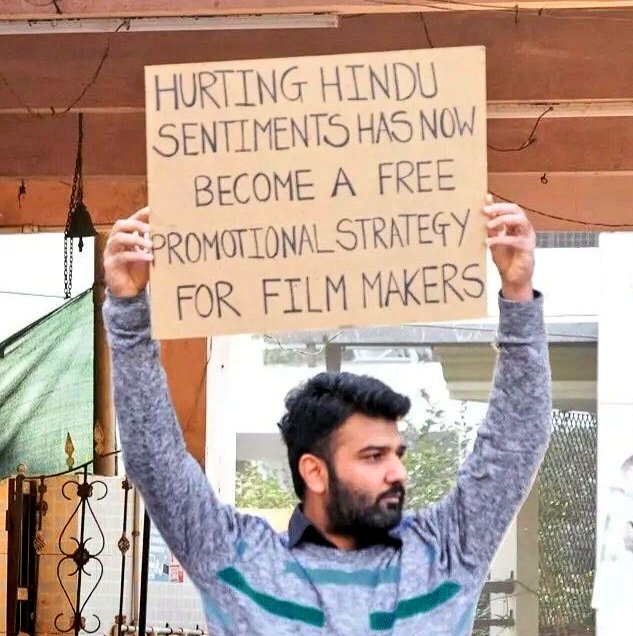 HURTING HINDU
SENTIMENTS HAS NOW
BECOME A FREE
PROMOTIONAL STRATEGY
FOR FILM MAKERS